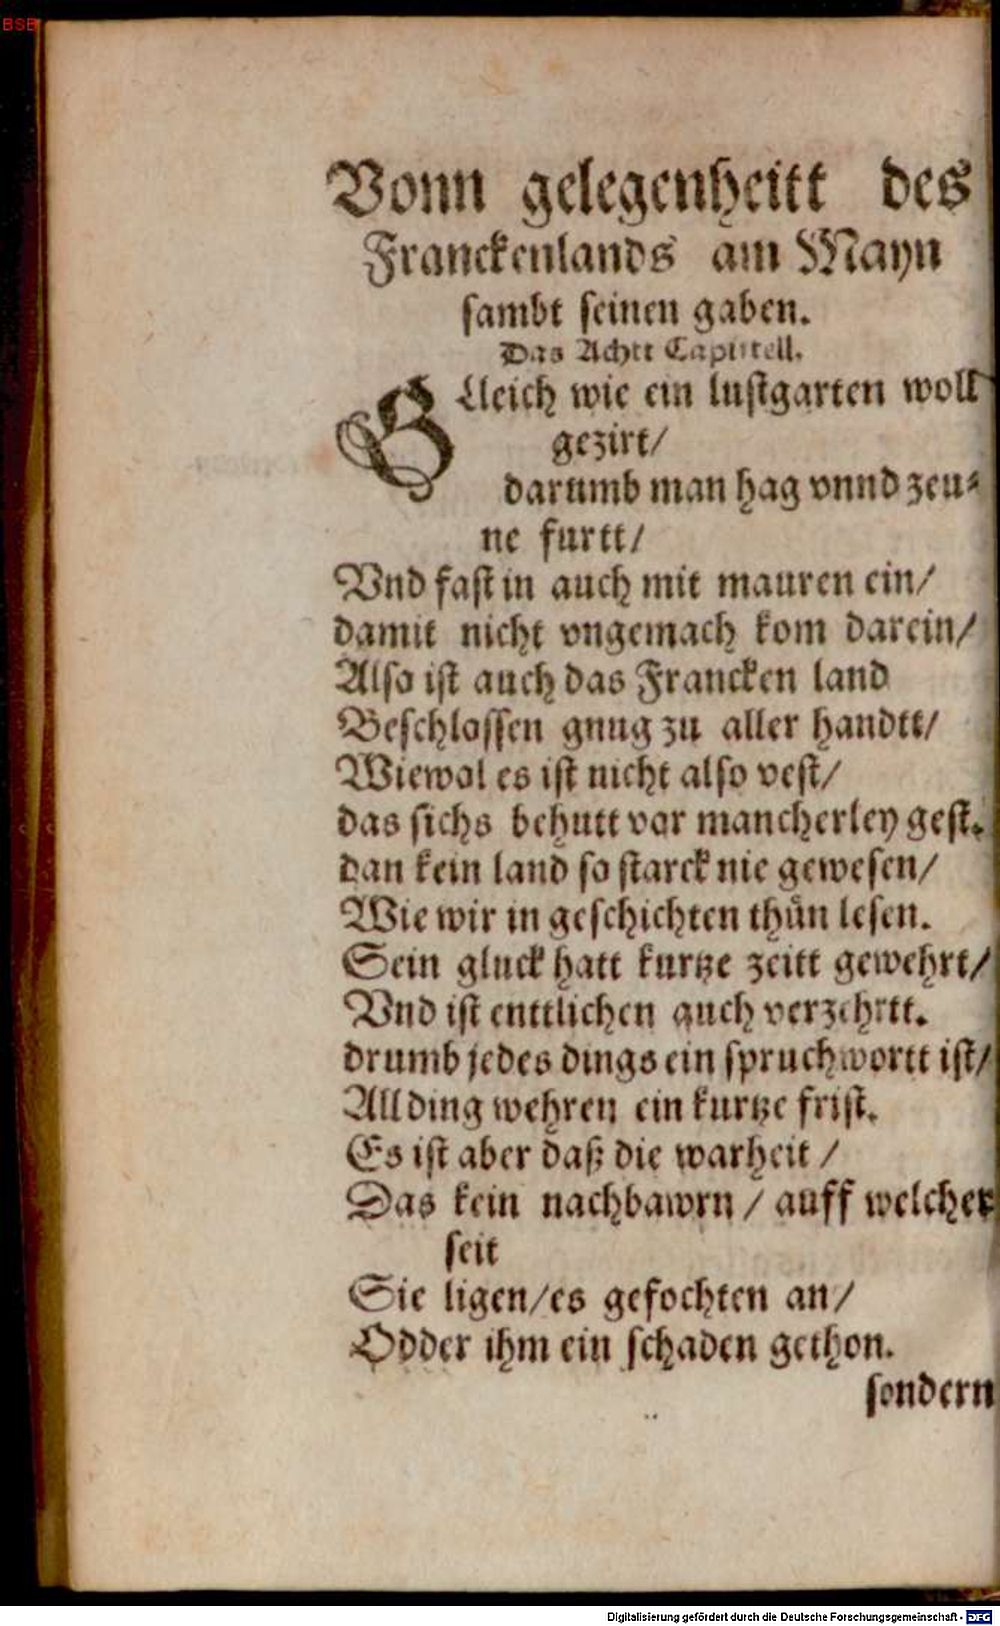 BSB
Vonn gelegenheitt des
Franckenlands am Mayn
sambt seinen gaben.
Das Achtt Capittell.
GLeich wie ein lustgarten woll
gezirt/
darumb man hag vnnd zeu⸗
ne furtt/
Vnd fast in auch mit mauren ein/
damit nicht vngemach kom darein/
Also ist auch das Francken land
Beschlossen gnug zu aller handtt/
Wiewol es ist nicht also vest/
das sichs behutt vor mancherley gest.
dan kein land so starck nie gewesen/
Wie wir in geschichten thůn lesen.
Sein gluck hatt kurtze zeitt gewehrt/
Vnd ist enttlichen auch verzehrtt.
drumb jedes dings ein spruchwortt ist/
All ding wehren ein kurtze frist.
Es ist aber daß die warheit /
Das kein nachbawrn / auff welcher
seit
Sie ligen/es gefochten an/
Odder ihm ein schaden gethon.
sondern
Digitalisierung gefördert durch die Deutsche Forschungsgemeinschaft - DFG